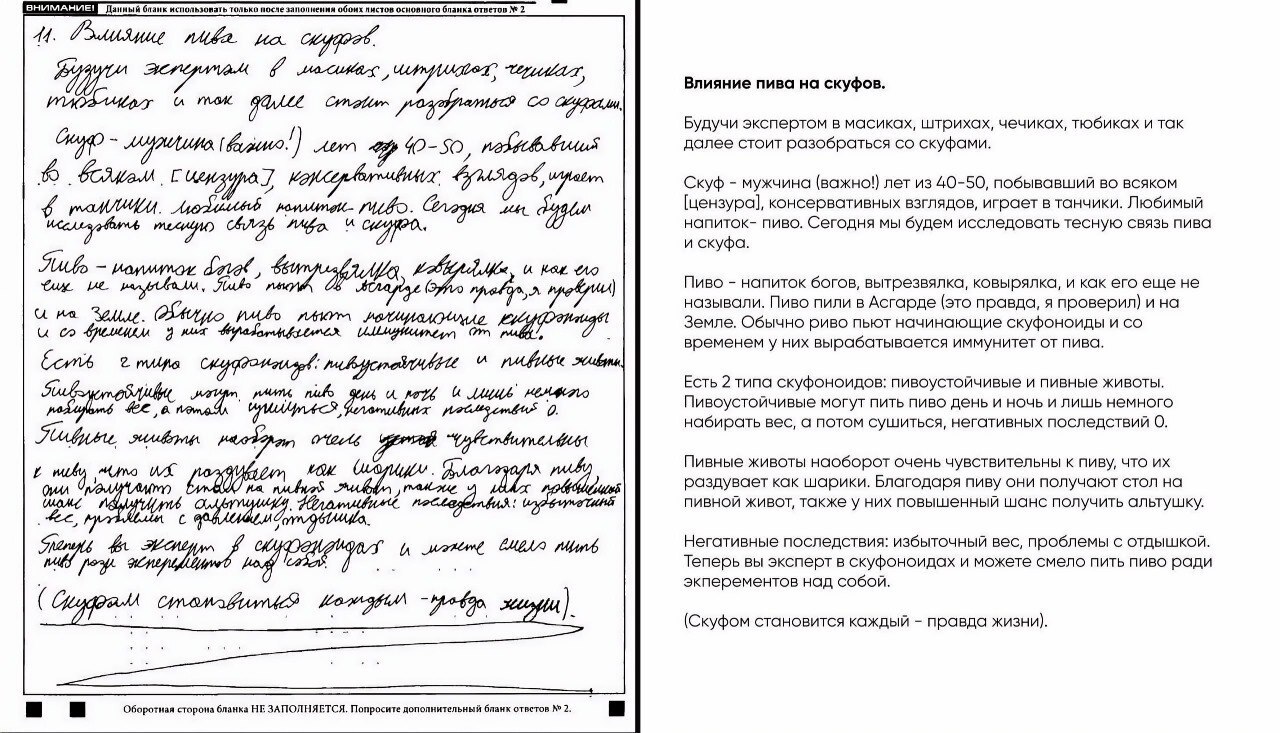 ВНИМАНИЕ! Данный бланк использовать только после заполнения обоих листов основного бланка ответов № 2
11. Влияние пива на скуфов.
Будучи экспертом в масиках, штрихах, чечиках,
тюбиках и так далее стоит разобраться со скуфами.
Скуф - мужчина (важно!) лет 40-50, побывавший
во всяком [цензура], консервативных взглядов, играет
в танчики. Любимый напиток- пиво. Сегодня мы будем
исследовать тесную связь пива и скуфа.
Пиво - напиток богов, вытрезвялка, ковырялка, и как его
еще не называли. Пиво пили в Асгарде (это правда, я проверил)
и на Земле. Обычно пиво пьют начинающие скуфоноиды
и со временем у них вырабатывается иммунитет от пива.
Есть 2 типа скуфоноидов: пивоустойчивые и пивные животы.
Пивоустойчивые могут пить пиво день и ночь и лишь немного
набирать вес, а потом сушиться, негативных последствий 0.
Пивные животы наоборот очень чувствительны
к пиву, что их раздувает как шарики. Благодаря пиву
они получают стол на пивной живот, также у них повышенный
шанс получить альтушку. Негативные последствия: избыточный
вес, проблемы с давлением, отдышка.
Теперь вы эксперт в скуфоноидах и можете смело пить
пиво ради экперементов над собой.
(Скуфом становиться каждым - правда жизни).
Оборотная сторона бланка НЕ ЗАПОЛНЯЕТСЯ. Попросите дополнительный бланк ответов № 2.
Влияние пива на скуфов.
Будучи экспертом в масиках, штрихах, чечиках, тюбиках и так
далее стоит разобраться со скуфами.
Скуф - мужчина (важно!) лет из 40-50, побывавший во всяком
[цензура], консервативных взглядов, играет в танчики. Любимый
напиток- пиво. Сегодня мы будем исследовать тесную связь пива
и скуфа.
Пиво - напиток богов, вытрезвялка, ковырялка, и как его еще не
называли. Пиво пили в Асгарде (это правда, я проверил) и на
Земле. Обычно риво пьют начинающие скуфоноиды и со
временем у них вырабатывается иммунитет от пива.
Есть 2 типа скуфоноидов: пивоустойчивые и пивные животы.
Пивоустойчивые могут пить пиво день и ночь и лишь немного
набирать вес, а потом сушиться, негативных последствий 0.
Пивные животы наоборот очень чувствительны к пиву, что их
раздувает как шарики. Благодаря пиву они получают стол на
пивной живот, также у них повышенный шанс получить альтушку.
Негативные последствия: избыточный вес, проблемы с отдышкой.
Теперь вы эксперт в скуфоноидах и можете смело пить пиво ради
экперементов над собой.
(Скуфом становится каждый - правда жизни).